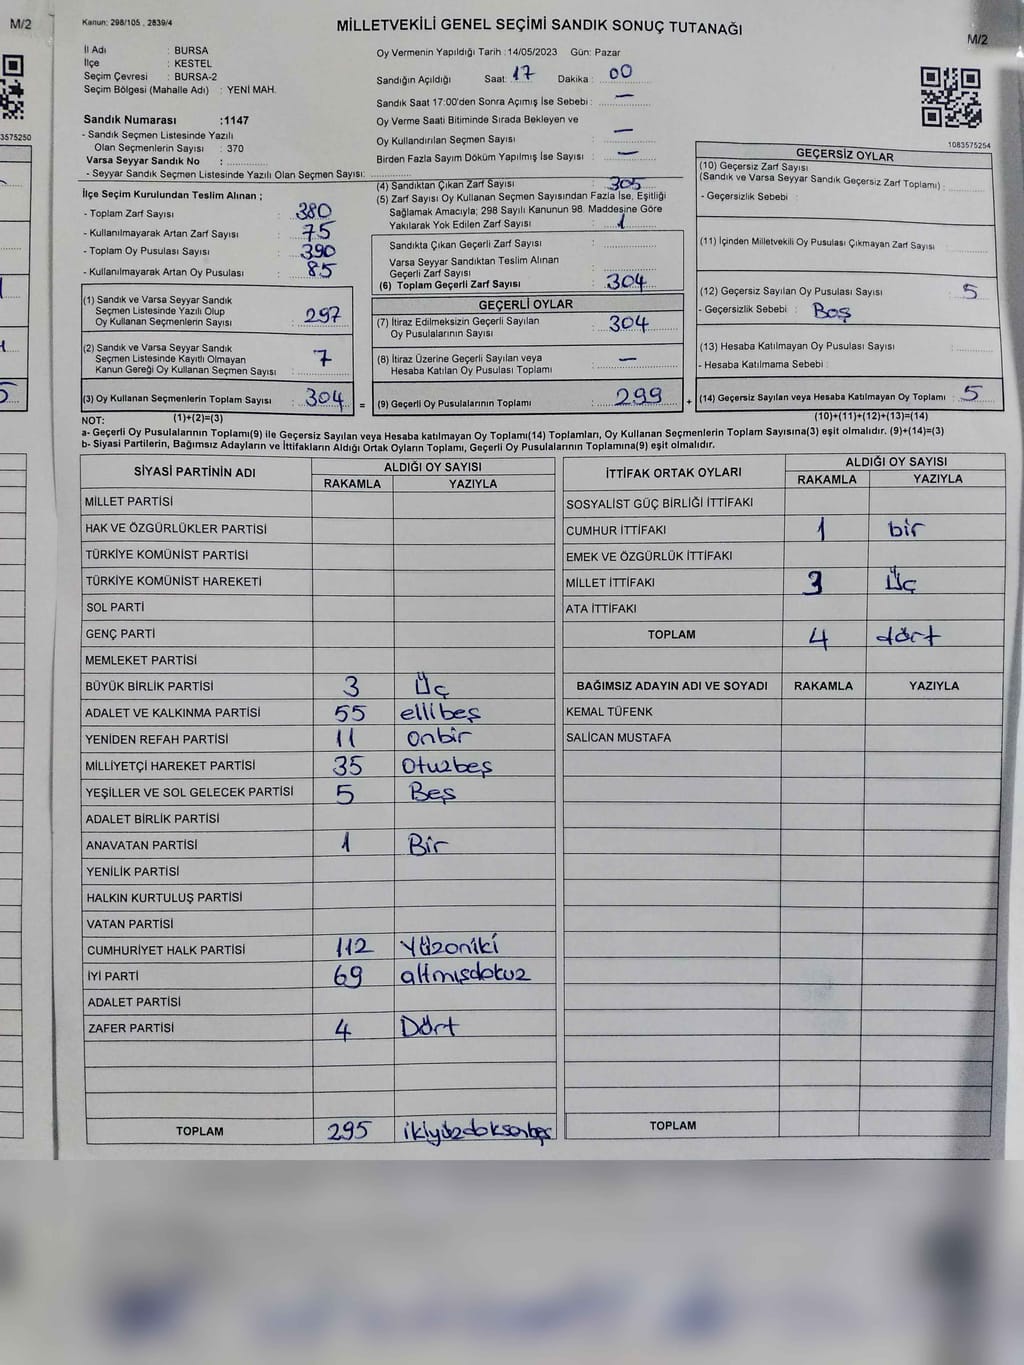 M/2
3575250
Kanun: 298/105 , 2839/4
MİLLETVEKİLİ GENEL SEÇİMİ SANDIK SONUÇ TUTANAĞI
M/2
İl Adı : BURSA
İlçe : KESTEL
Seçim Çevresi : BURSA-2
Seçim Bölgesi (Mahalle Adı) : YENİ MAH.
Sandık Numarası :1147
- Sandık Seçmen Listesinde Yazılı
Olan Seçmenlerin Sayısı : 370
Varsa Seyyar Sandık No :
- Seyyar Sandık Seçmen Listesinde Yazılı Olan Seçmen Sayısı:
Oy Vermenin Yapıldığı Tarih :14/05/2023 Gün: Pazar
Sandığın Açıldığı Saat: 17 Dakika : 00
Sandık Saat 17:00'den Sonra Açımış İse Sebebi : —
Oy Verme Saati Bitiminde Sırada Bekleyen ve
Oy Kullandırılan Seçmen Sayısı : —
Birden Fazla Sayım Döküm Yapılmış İse Sayısı : —
1083575254
İlçe Seçim Kurulundan Teslim Alınan ;
- Toplam Zarf Sayısı : 380
- Kullanılmayarak Artan Zarf Sayısı : 75
- Toplam Oy Pusulası Sayısı : 390
- Kullanılmayarak Artan Oy Pusulası : 85
(1) Sandık ve Varsa Seyyar Sandık
Seçmen Listesinde Yazılı Olup
Oy Kullanan Seçmenlerin Sayısı : 297
(2) Sandık ve Varsa Seyyar Sandık
Seçmen Listesinde Kayıtlı Olmayan
Kanun Gereği Oy Kullanan Seçmen Sayısı : 7
(3) Oy Kullanan Seçmenlerin Toplam Sayısı : 304
(4) Sandıktan Çıkan Zarf Sayısı : 305
(5) Zarf Sayısı Oy Kullanan Seçmen Sayısından Fazla İse, Eşitliği
Sağlamak Amacıyla; 298 Sayılı Kanunun 98. Maddesine Göre
Yakılarak Yok Edilen Zarf Sayısı : 1
Sandıkta Çıkan Geçerli Zarf Sayısı :
Varsa Seyyar Sandıktan Teslim Alınan
Geçerli Zarf Sayısı :
(6) Toplam Geçerli Zarf Sayısı : 304
GEÇERLİ OYLAR
(7) İtiraz Edilmeksizin Geçerli Sayılan
Oy Pusulalarının Sayısı : 304
(8) İtiraz Üzerine Geçerli Sayılan veya
Hesaba Katılan Oy Pusulası Toplamı : —
= (9) Geçerli Oy Pusulalarının Toplamı : 299
GEÇERSİZ OYLAR
(10) Geçersiz Zarf Sayısı
(Sandık ve Varsa Seyyar Sandık Geçersiz Zarf Toplamı) :
- Geçersizlik Sebebi :
(11) İçinden Milletvekili Oy Pusulası Çıkmayan Zarf Sayısı
(12) Geçersiz Sayılan Oy Pusulası Sayısı : 5
- Geçersizlik Sebebi : Boş
(13) Hesaba Katılmayan Oy Pusulası Sayısı :
- Hesaba Katılmama Sebebi :
+ (14) Geçersiz Sayılan veya Hesaba Katılmayan Oy Toplamı : 5
NOT: (1)+(2)=(3)
(10)+(11)+(12)+(13)=(14)
a- Geçerli Oy Pusulalarının Toplamı(9) ile Geçersiz Sayılan veya Hesaba katılmayan Oy Toplamı(14) Toplamları, Oy Kullanan Seçmenlerin Toplam Sayısına(3) eşit olmalıdır. (9)+(14)=(3)
b- Siyasi Partilerin, Bağımsız Adayların ve İttifakların Aldığı Ortak Oyların Toplamı, Geçerli Oy Pusulalarının Toplamına(9) eşit olmalıdır.
SİYASİ PARTİNİN ADI ALDIĞI OY SAYISI
RAKAMLA YAZIYLA
MİLLET PARTİSİ
HAK VE ÖZGÜRLÜKLER PARTİSİ
TÜRKİYE KOMÜNİST PARTİSİ
TÜRKİYE KOMÜNİST HAREKETİ
SOL PARTİ
GENÇ PARTİ
MEMLEKET PARTİSİ
BÜYÜK BİRLİK PARTİSİ 3 Üç
ADALET VE KALKINMA PARTİSİ 55 ellibeş
YENİDEN REFAH PARTİSİ 11 onbir
MİLLİYETÇİ HAREKET PARTİSİ 35 Otuzbeş
YEŞİLLER VE SOL GELECEK PARTİSİ 5 Beş
ADALET BİRLİK PARTİSİ
ANAVATAN PARTİSİ 1 Bir
YENİLİK PARTİSİ
HALKIN KURTULUŞ PARTİSİ
VATAN PARTİSİ
CUMHURİYET HALK PARTİSİ 112 Yüzoniki
İYİ PARTİ 69 altmışdokuz
ADALET PARTİSİ
ZAFER PARTİSİ 4 Dört
TOPLAM 295 ikiyüzdoksanbeş
İTTİFAK ORTAK OYLARI ALDIĞI OY SAYISI
RAKAMLA YAZIYLA
SOSYALİST GÜÇ BİRLİĞİ İTTİFAKI
CUMHUR İTTİFAKI 1 bir
EMEK VE ÖZGÜRLÜK İTTİFAKI
MİLLET İTTİFAKI 3 Üç
ATA İTTİFAKI
TOPLAM 4 dört
BAĞIMSIZ ADAYIN ADI VE SOYADI RAKAMLA YAZIYLA
KEMAL TÜFENK
SALİCAN MUSTAFA
TOPLAM